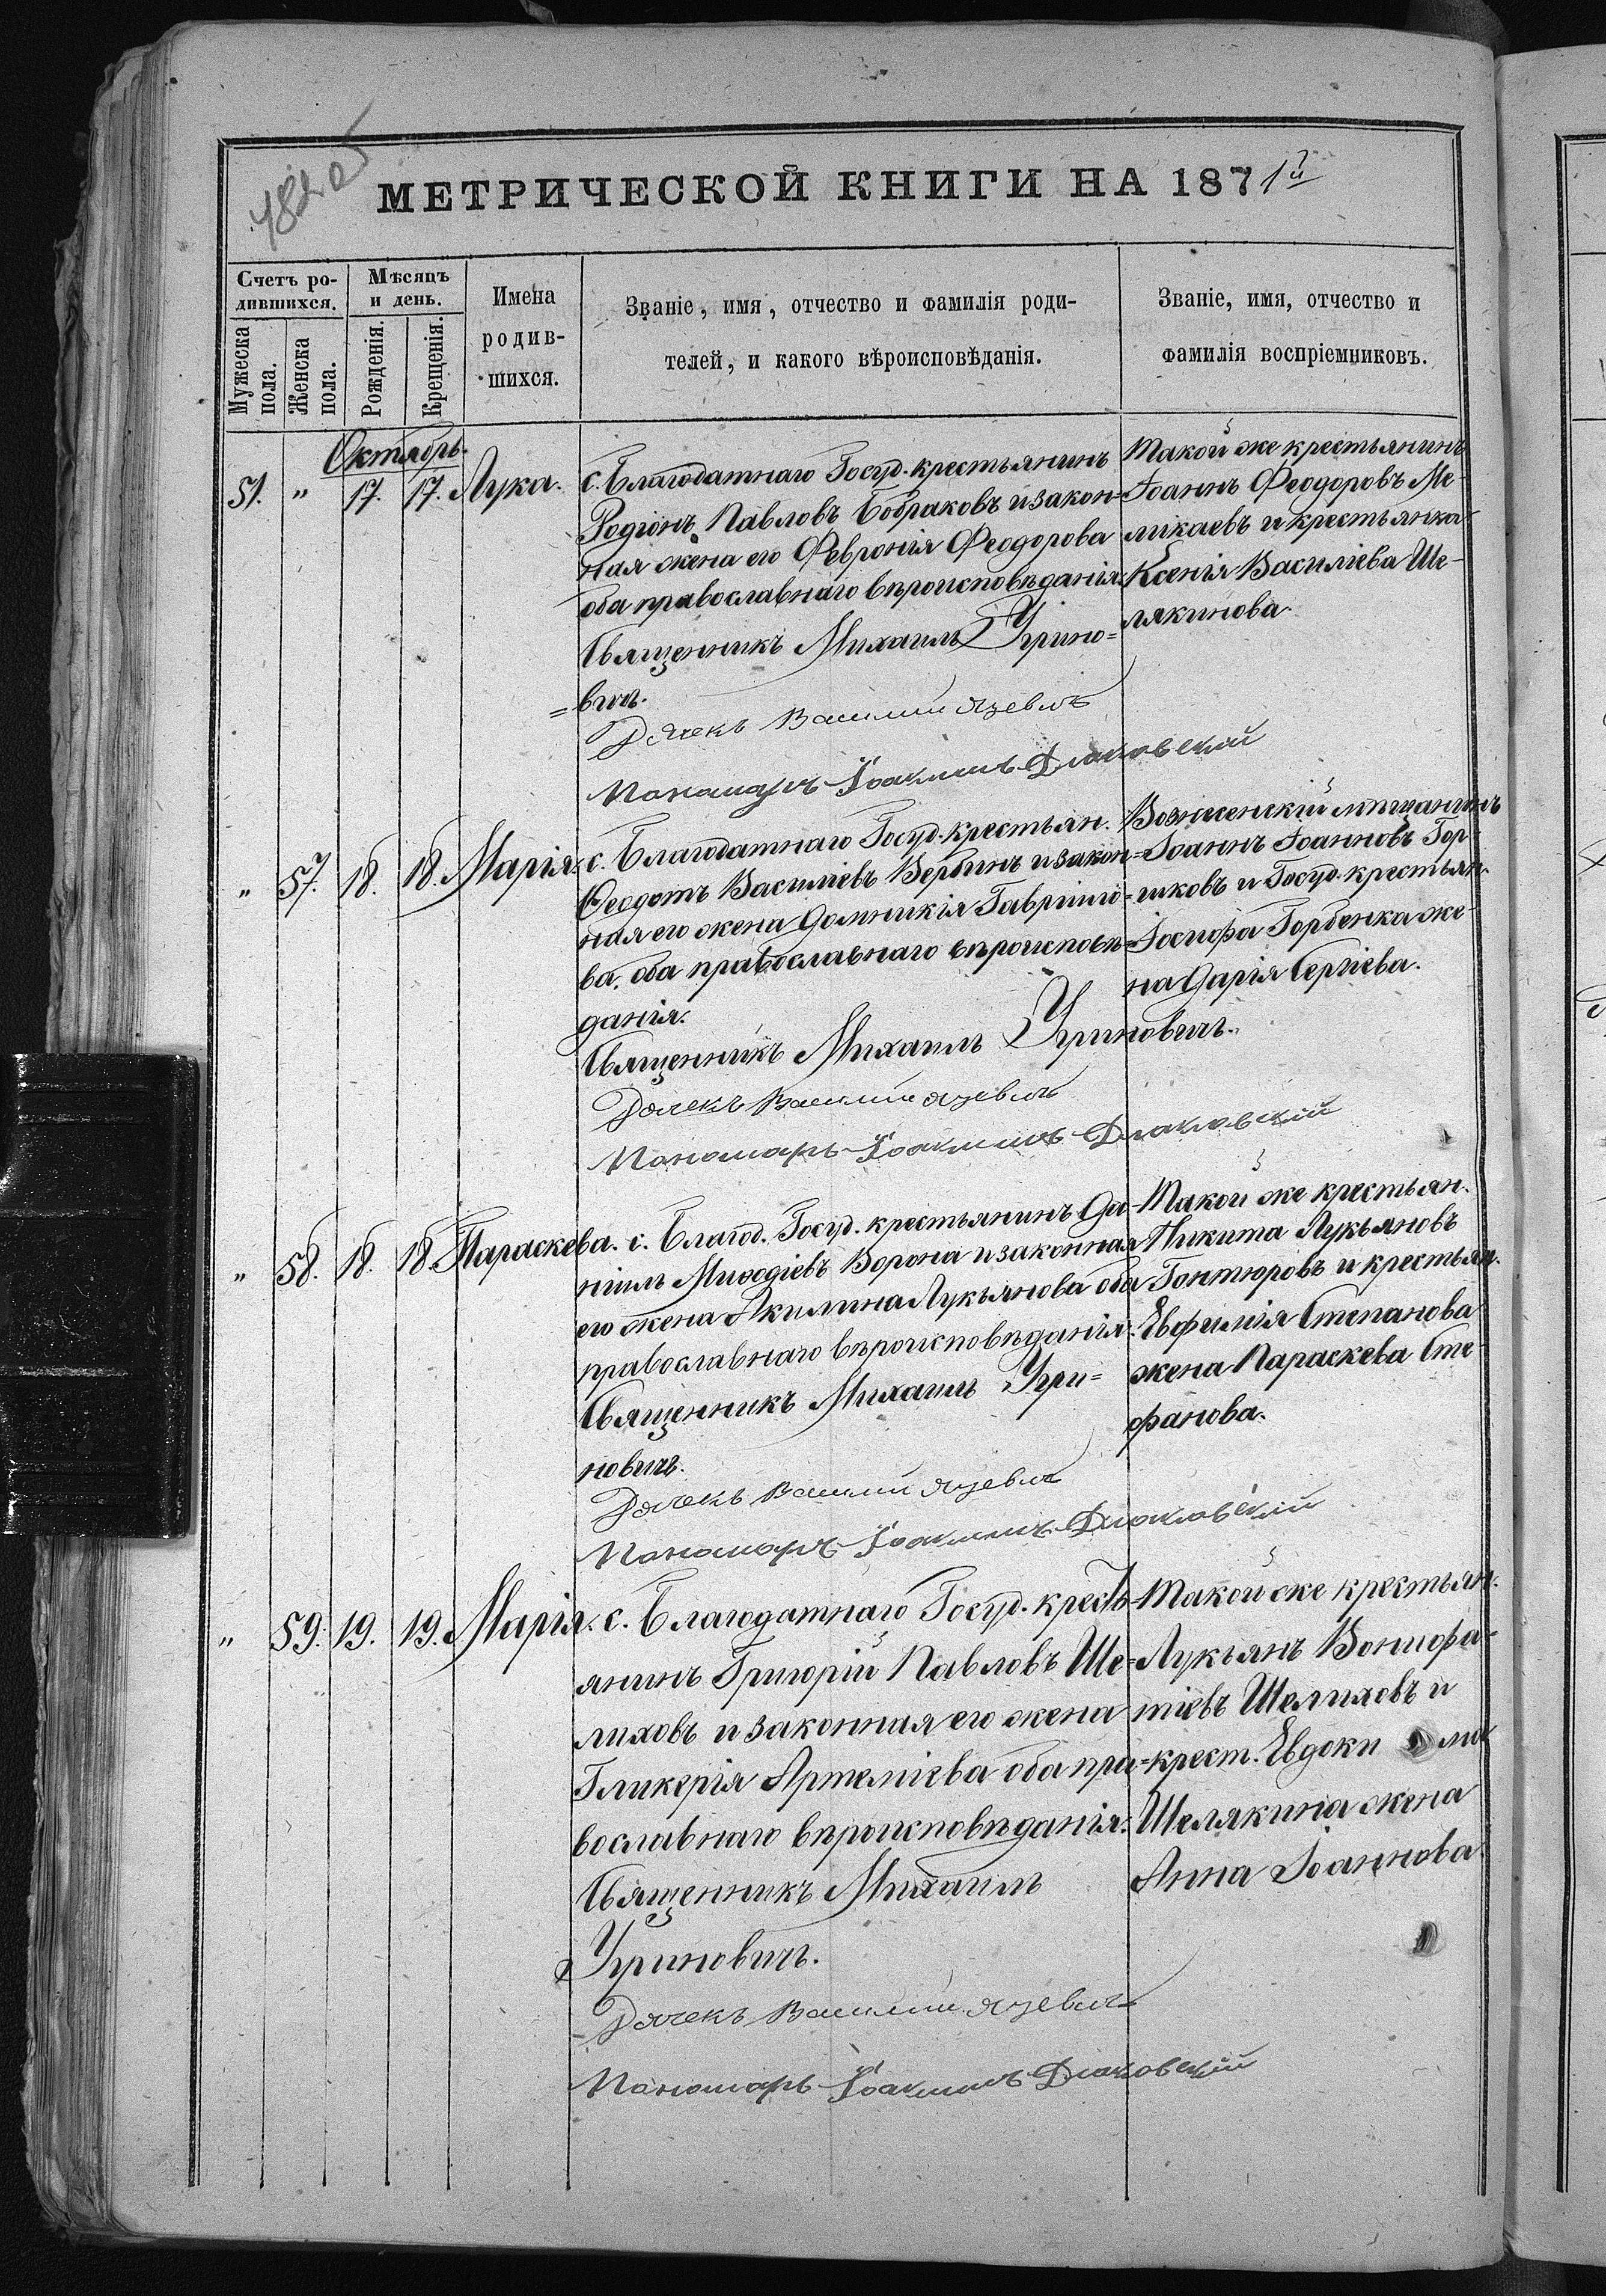 МЕТРИЧЕСКОЙ КНИГИ НА 1871й
Счетъ ро-
дившихся.
Мѣсяцъ
и день.
Имена
родив-
шихся.
Званіе, имя, отчество и фамилія роди-
телей, и какого вѣроисповѣданія.
Званіе, имя, отчество и
фамилія воспріемниковъ.
Мужеска
пола.
Женска
пола.
Рожденія.
Крещенія.
Октябрь.
51. „ 17. 17. Лука.
с. Благодатнаго Госуд. крестьянинъ
Родіонъ Павловъ Бобраковъ и закон=
ная жена его Февронія Феодорова
оба православнаго вѣроисповѣданія.
Священникъ Михаилъ Угрино=
=вичъ.
Дячекъ Василій Язевичъ
Пономарь Іоакимъ Діаковскій
Такой же крестьянинъ
Іоаннъ Феодоровъ Ме-
ликаевъ и крестьянка
Ксенія Василіева Ше-
лякинова.
„ 57. 18. 18. Марія.
с. Благодатнаго Госуд. крестьян.
Феодотъ Василіевъ Вербинъ и закон=
ная его жена Домникія Гавріило=
ва, оба православнаго вѣроисповѣ=
данія.
Священникъ Михаилъ Угриновичъ.
Дячекъ Василій Язевичъ
Пономарь Іоакимъ Діаковскій
Вознесенскій мѣщанинъ
Іоаннъ Іоанновъ Гор-
шковъ и Госуд. крестьян.
Іосифа Горбенка же-
на Дарія Сергіева.
„ 58. 18. 18. Параскева.
с. Благод. Госуд. крестьянинъ Да-
ніилъ Миѳодіевъ Ворона и законная
его жена Акилина Лукьянова оба
православнаго вѣроисповѣданія.
Священникъ Михаилъ Угри=
новичъ.
Дячекъ Василій Язевичъ
Пономарь Іоакимъ Діаковскій
Такой же крестьян.
Никита Лукьяновъ
Гонтюровъ и крестьян.
Евфимія Степанова
жена Параскева Сте-
фанова.
„ 59. 19. 19. Марія.
с. Благодатнаго Госуд. кресть-
янинъ Григорій Павловъ Ше=
лиховъ и законная его жена
Гликерія Артеміева оба пра=
вославнаго вѣроисповѣданія.
Священникъ Михаилъ
Угриновичъ.
Дячекъ Василій Язевичъ
Пономарь Іоакимъ Діаковскій
Такой же крестьян.
Лукьянъ Вонифа-
тіевъ Шелиховъ и
крест. Евдоки ма
Шелякина жена
Анна Іоаннова.